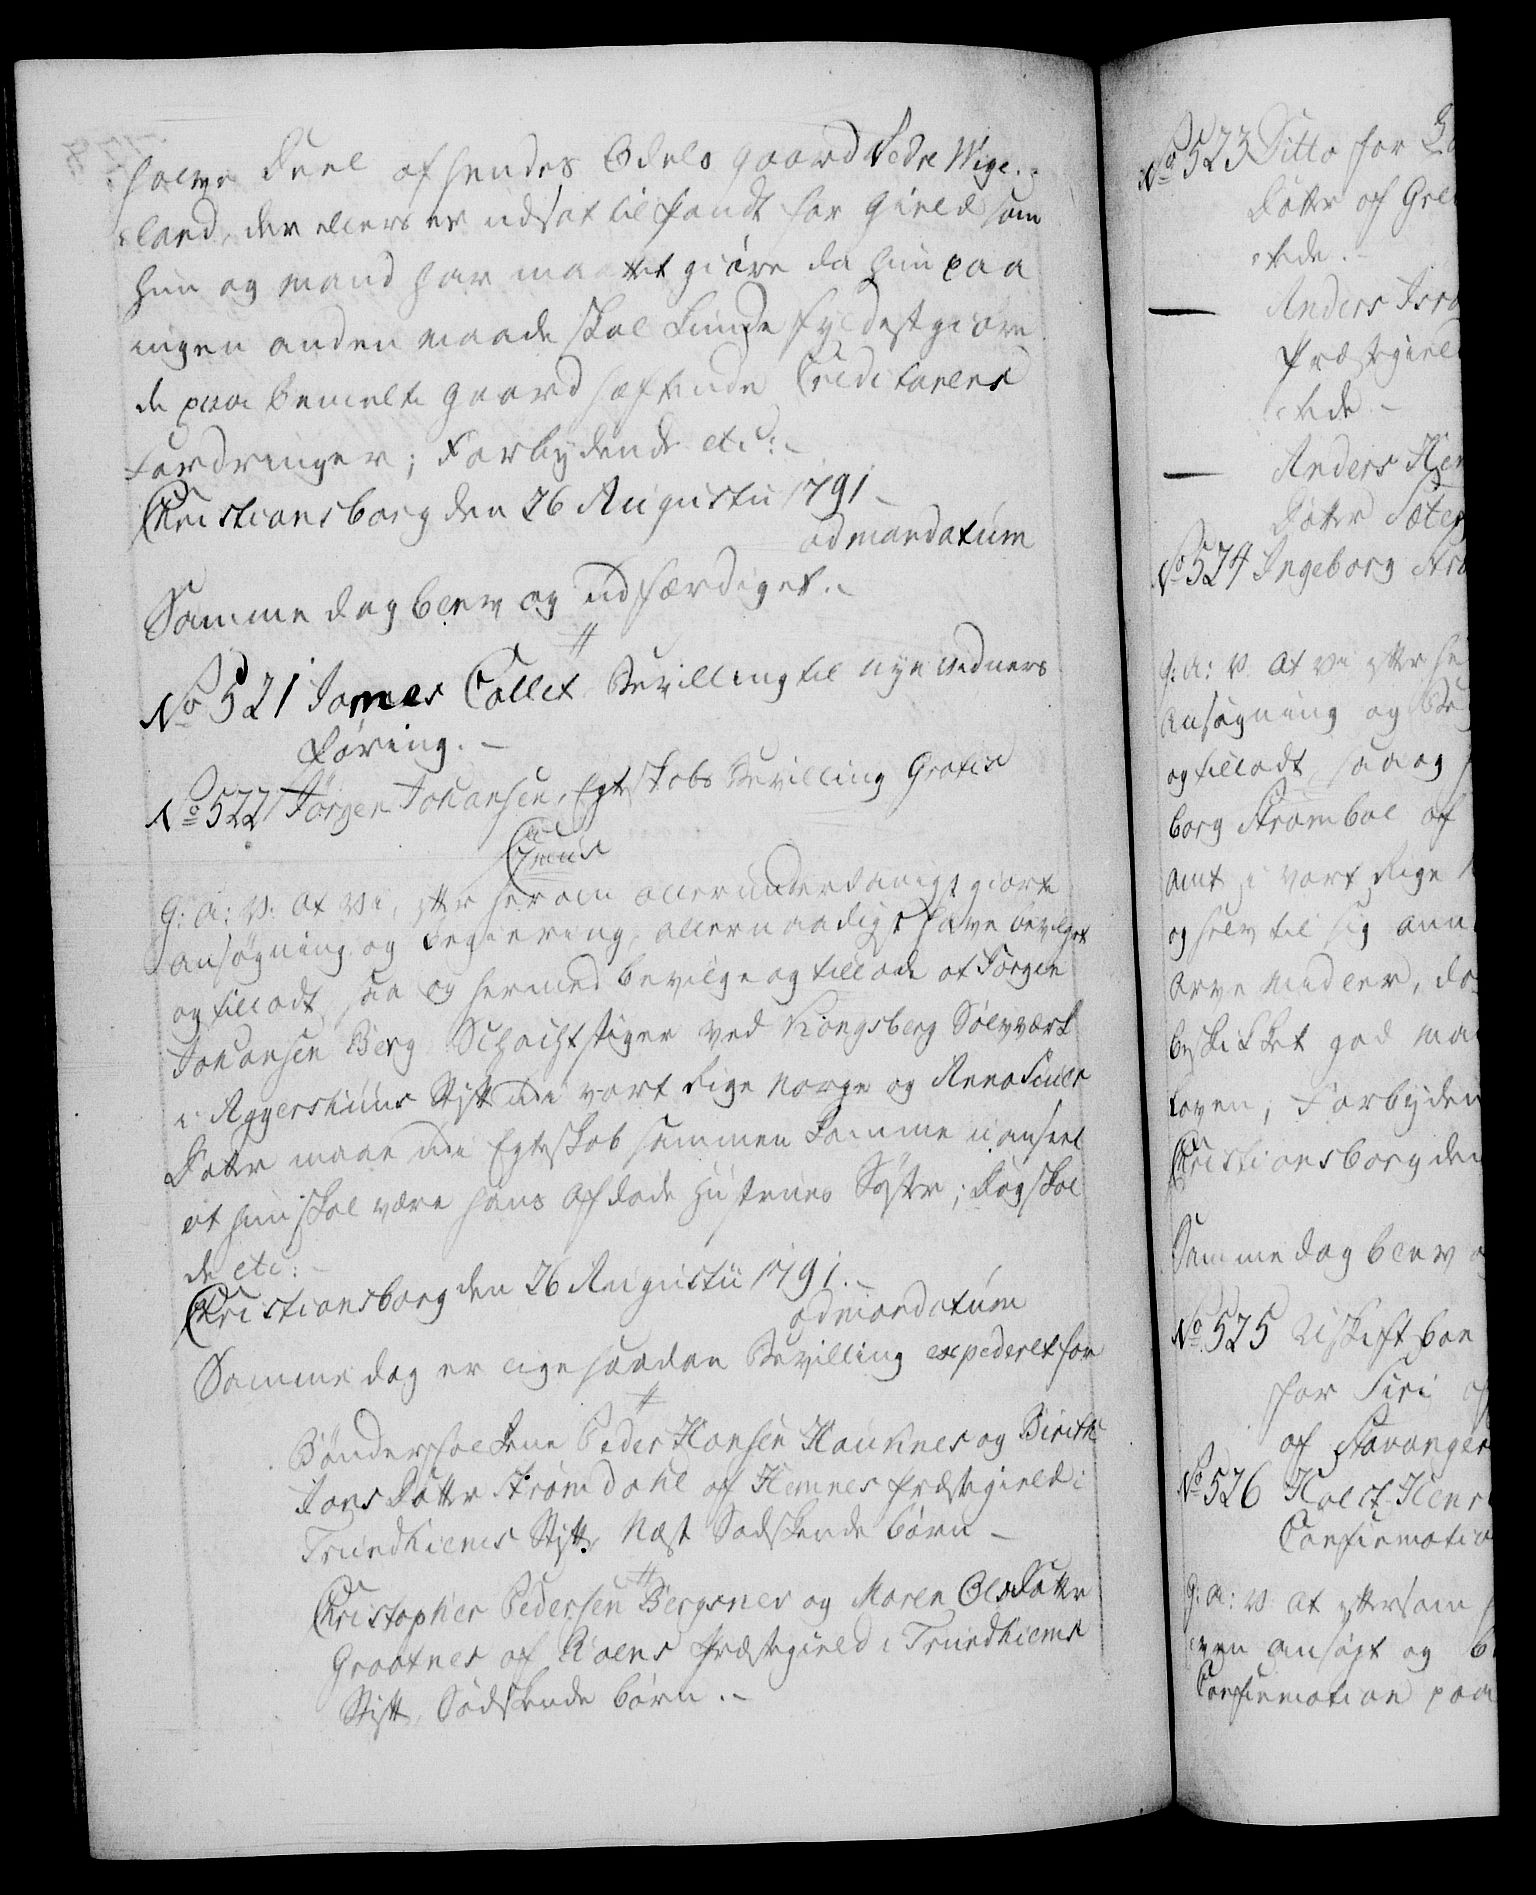 halve Deel af hendes Odels gaard Nedre Wige-
land, der ellers er udsat til Pandt for Gield som
hun og Mand har maattet giøre da hun paa
ingen anden maade skal kunde fyldestgiøre
de paa bemelte Gaard hæftende Creditorers
Fordringer; Forbydende etc:
Christiansborg den 26 Augustii 1791
ad mandatum
Samme dag blev og udfærdiget.
No 521 James Collet Bevilling til nye Vidners
Føring.
No 522 Jørgen Johansen, Egteskabs Bevilling Gratis
G: A: V: At Vi, efter herom allerunderdanigst giorte
ansøgning og Begiering, allernaadigst have bevilget
og tilladt, saa og hermed bevilge og tillade at Jørgen
Johansen Berg Schachtstiger ved Kongsberg Sølvværk
i Aggershuus Stift udi vort Rige Norge og Anna
Datter maae udi Egteskab sammen komme uanseet
at hun skal være hans afdøde Hustrues Søster; Dog skal
de etc:
Christiansborg den 26 Augustii 1791.
ad mandatum
Samme dag er lige saadan Bevilling expederet for
Bønderfolkene Peder Hansen Hauknes og Birith
Jons Datter Strømdahl af Hemnes Præstegield i
Trundhiems Stift, Næst Sødskende børn
Christopher Pedersen Bergsnes og Maren Ols Datter
Graatnes af Præstegield i Trundhiems
Stift, Sødskende børn.
No 523 Ditto for
Datter af
stede.
Anders
Præstegield
stede
Anders
Datter
No 524 Ingeborg
G: A: V: At Vi efter
Ansøgning og
og tilladt, saa og
borg Strømboe af
Amt i vort Rige
og selv til sig
Arve Midler,
beskikket god
Loven; Forbyden
Christiansborg den
Samme dag blev
No 525 Uskiftet boe
for Siri
af Stavanger
No 526
Confirmation
G: A: V: At eftersom
ven ansøgt og
Confirmation paa